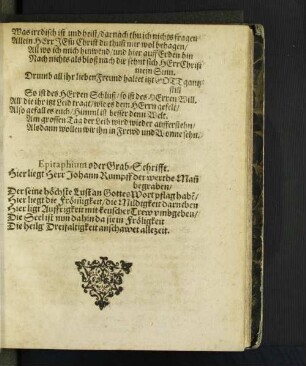 Was irrdisch ist und heist/ darnach thu ich nichts fragen
Allein HErr JEsu Christ du thust mir wol behagen/
All wo ich mich hinwend/ und hier auff Erden bin
Nach nichts als bloß nach dir sehnt sich HErr Christ
mein Sinn.
Drumb all ihr lieben Freund haltet itzt GOTT gantz
still
So ist des HErden Schluß/ so ist des HErren Will.
All die ihr itzt Leid tragt/ wie es dem HErrn gefelt/
Also gefall es euch/ Himml ist besser denn Welt.
Am grossen Tag der Leib wird wieder aufferstehn/
Alsdann wollen wir ihn in Frewd und Wonne sehn.
Epitaphium oder Grab-Schrifft.
Hier liegt Herr Johann Rumpff der werthe Mañ
begraben/
Der seine höchste Lust an Gottes Wort pflag habẽ/
Hier liegt die Fröm̃igkeit/ die Mildigkeit darneben
Hier ligt Auffrigkeit mit keuscher Trew umbgeben/
Die Seel ist nun dahin da sie in Fröligkeit
Die heilg Dreifaltigkeit anschawet allezeit.